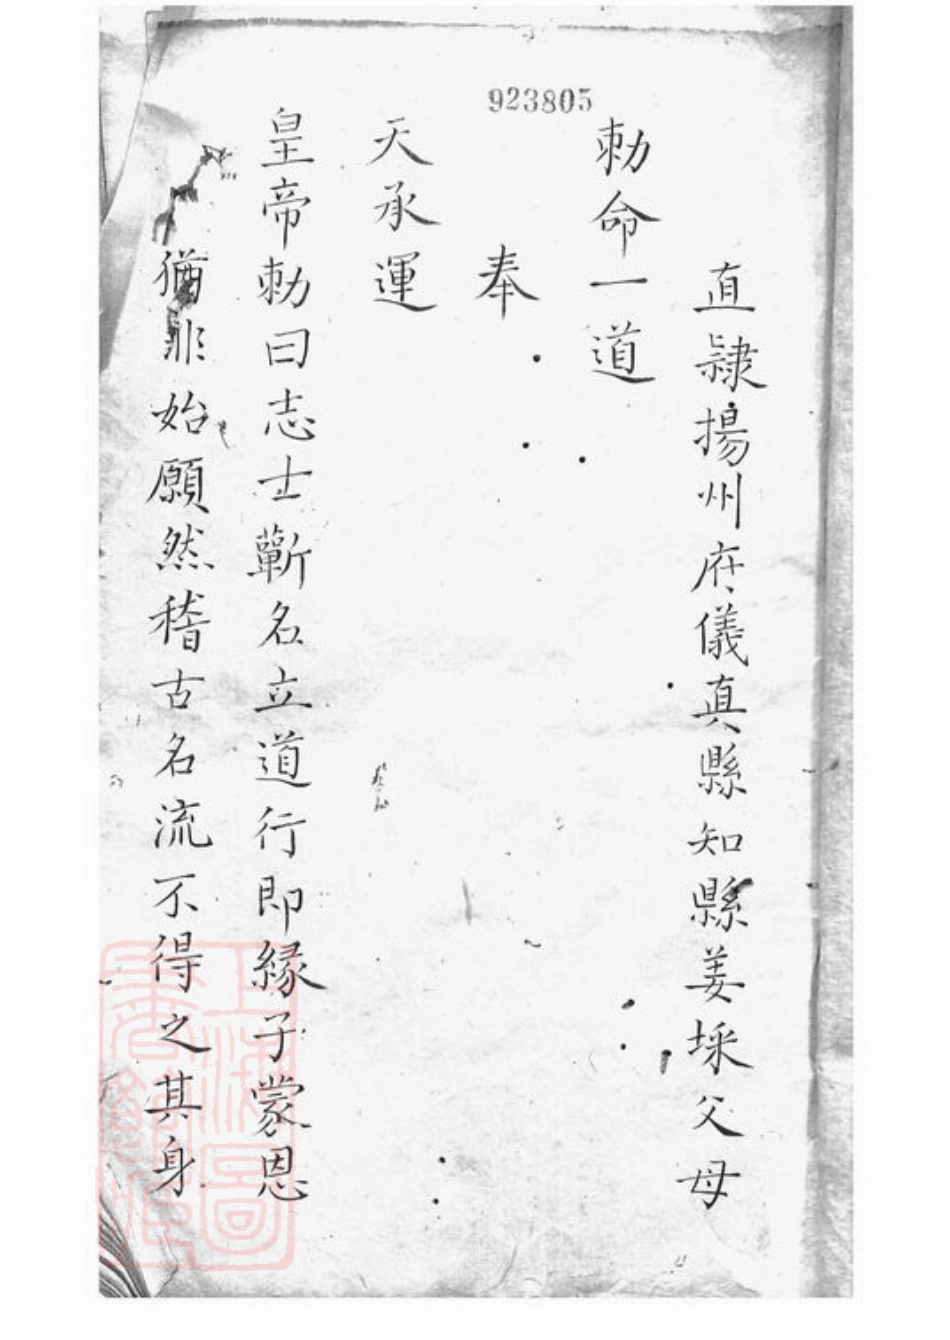 923805
直隷揚州府儀真縣知縣姜埰父母
勅命一道
奉
天承運
皇帝勅曰志士蘄名立道行即緣子蒙恩
猶非始願然稽古名流不得之其身
上海圖書館藏